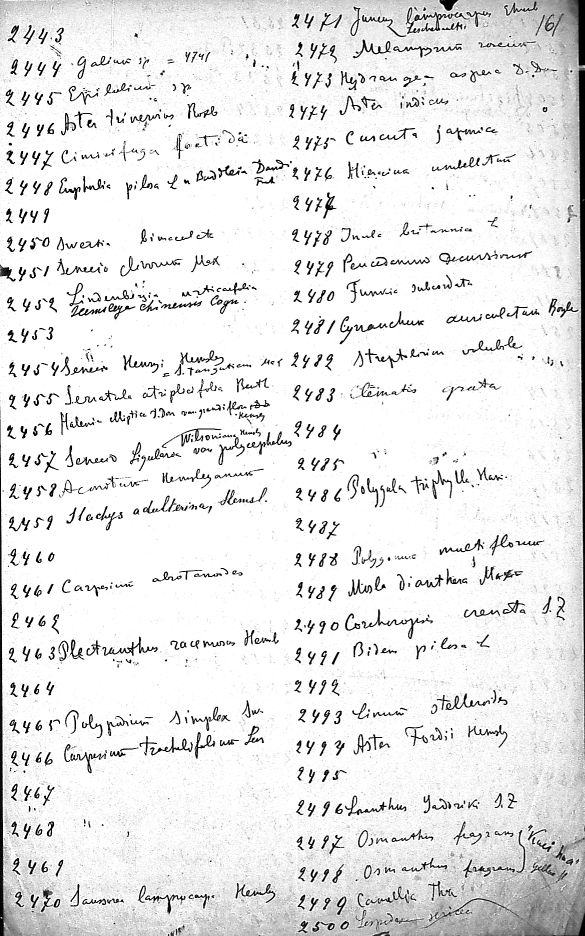 161
2443
2444 Galium sp = 4741
2445 Epilobium sp
2446 Aster trinervius Roxb
2447 Cimicifuga foetida
2448 Euphorbia pilosa L Buddleia
2449
2450 Swertia bimaculata
2451 Senecio clivorum Max
2452 Lindenbergia urticaefolia
chinensis Cogn.
2453
2454 Senecio Henryi Hemsley
= S. tanguticum Max
2455 Serratula atriplicifolia Benth
2456 Halenia elliptica D. Don var grandiflora
Hemsley
2457 Senecio Ligularia var polycephalus
Wilsoniana Hemsly
2458 Aconitum Hemsleyanum
2459 Stachys adulterina, Hemsl.
2460
2461 Carpesium abrotanoides
2462
2463 Plectranthus racemosus Hemsl
2464
2465 Polypodium simplex Sw.
2466 Carpesium trachelifolium Less
2467
2468
2469
2470 Saussurea lamprocarpa Hemsly
2471 Juncus lamprocarpus Ehrh
Leschenaultii
2472 Melampyrum roseum
2473 Hydrangea aspera D. Don
2474 Aster indicus
2475 Cuscuta japonica
2476 Hieracium umbellatum
2477
2478 Inula britannica L
2479 Peucedanum decursivum
2480 Funkia subcordata
2481 Cynanchum auriculatum Royle
2482 Streptolirion volubile
2483 Clematis grata
2484
2485
2486 Polygala triphylla Ham.
2487
2488 Polygonum multiflorum
2489 Mosla dianthera Max
2490 Corchoropsis crenata S.Z
2491 Bidens pilosa L
2492
2493 Linum stelleroides
2494 Aster Fordii Hemsly
2495
2496 Loranthus Yadoriki S.Z
2497 Osmanthus fragrans
2498 Osmanthus fragrans
yellow
2499 Camellia Thea
2500 Lespedeza sericea